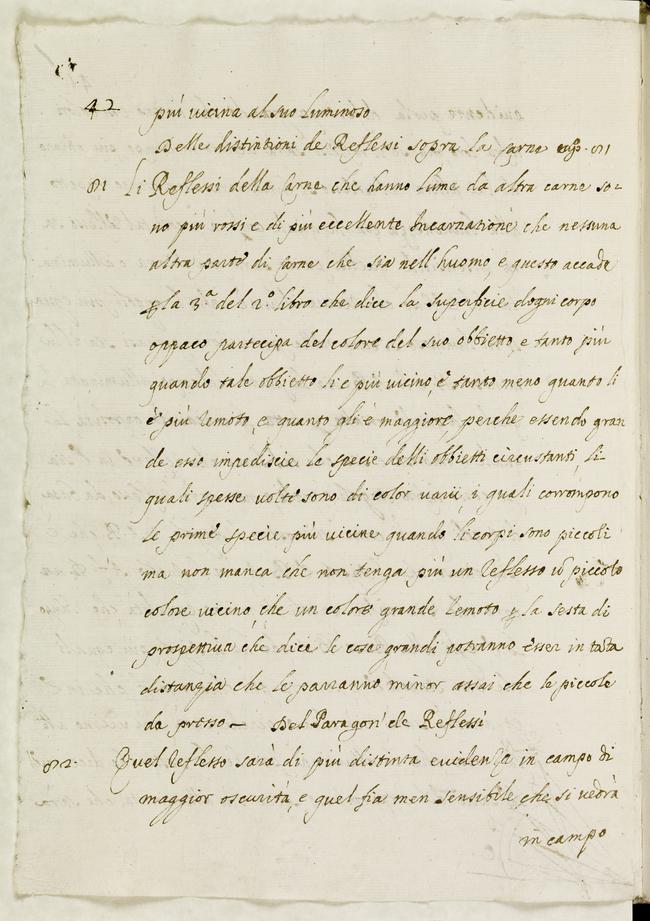 42 più vicina al suo luminoso
Delle distintioni de Reflessi sopra la Carne cap. 81
81 Li Reflessi della Carne che hanno lume da altra carne so-
no più rossi e di più eccellente Incarnatione che nessuna
altra parte di Carne che sia nell'huomo, e questo accade
p la 3.a del 2.o libro che dice la superficie dogni corpo
oppaco partecipa del colore del suo obbietto e tanto più
quando tale obbietto li è più vicino, è tanto meno quanto li
è più remoto, e quanto gli è maggiore, perche essendo gran
de esso impediscie le specie delli obbietti circustanti, li
quali spesse volte sono di color varii, i quali corrompono
le prime specie più vicine quando li corpi sono piccoli
ma non manca che non tenga più un reflesso piccolo
colore vicino, che un colore grande remoto p la sesta di
prospettiva che dice le cose grandi potranno esser in tata
distanzia che le parranno minor assai che le piccole
da presso – Del Paragon' de Reflessi
82. Quel reflesso sarà di più distinta evidenza in campo di
maggior oscurità, e quel fia men sensibile che si vedrà
in campo